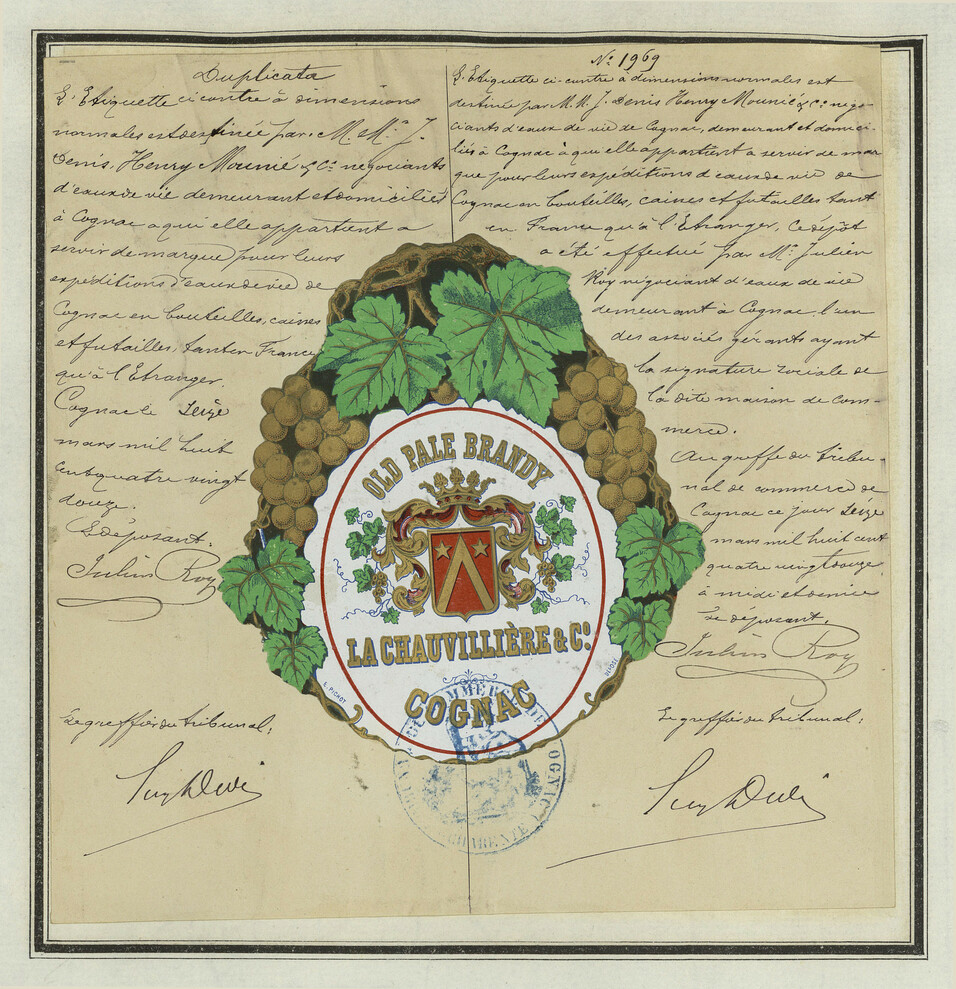 Duplicata
L'Etiquette ci contre à dimensions
normales est destinée par M. Mrs J.
Denis, Henry Mounié & Cie négociants
d'eaux de vie demeurant et domiciliés
à Cognac a qui elle appartient a
servir de marque pour leurs
expéditions d'eaux de vie de
Cognac en bouteilles, caisses
et futailles, tant en France
qu'à l'Etranger.
Cognac le Seize
mars mil huit
cent quatre vingt
douze.
Le déposant:
Julien Roy
Le greffier du tribunal:
No 1969
L'Etiquette ci-contre à dimensions normales est
destinée par M.M. J. Denis Henry Mounié & Cie négo-
ciants d'eaux de vie de Cognac, demeurant et domici-
liés à Cognac à qui elle appartient a servir de mar
que pour leurs expéditions d'eaux de vie de
Cognac en bouteilles, caisses et futailles tant
en France qu'à l'Etranger, Ce dépôt
a été effectué par Mr Julien
Roy négociant d'eaux de vie
demeurant à Cognac l'un
des associés gérants ayant
la signature sociale de
la dite maison de com-
merce.
Au greffe du tribu-
nal de commerce de
Cognac ce jour Seize
mars mil huit cent
quatre vingt douze
à midi et demie
Le déposant,
Julien Roy
Le greffier du tribunal:
OLD PALE BRANDY
LA CHAUVILLIÈRE & Co.
COGNAC
L. PICHOT
DÉPOSÉ
COMMERCE DE COGNAC
CHARENTE